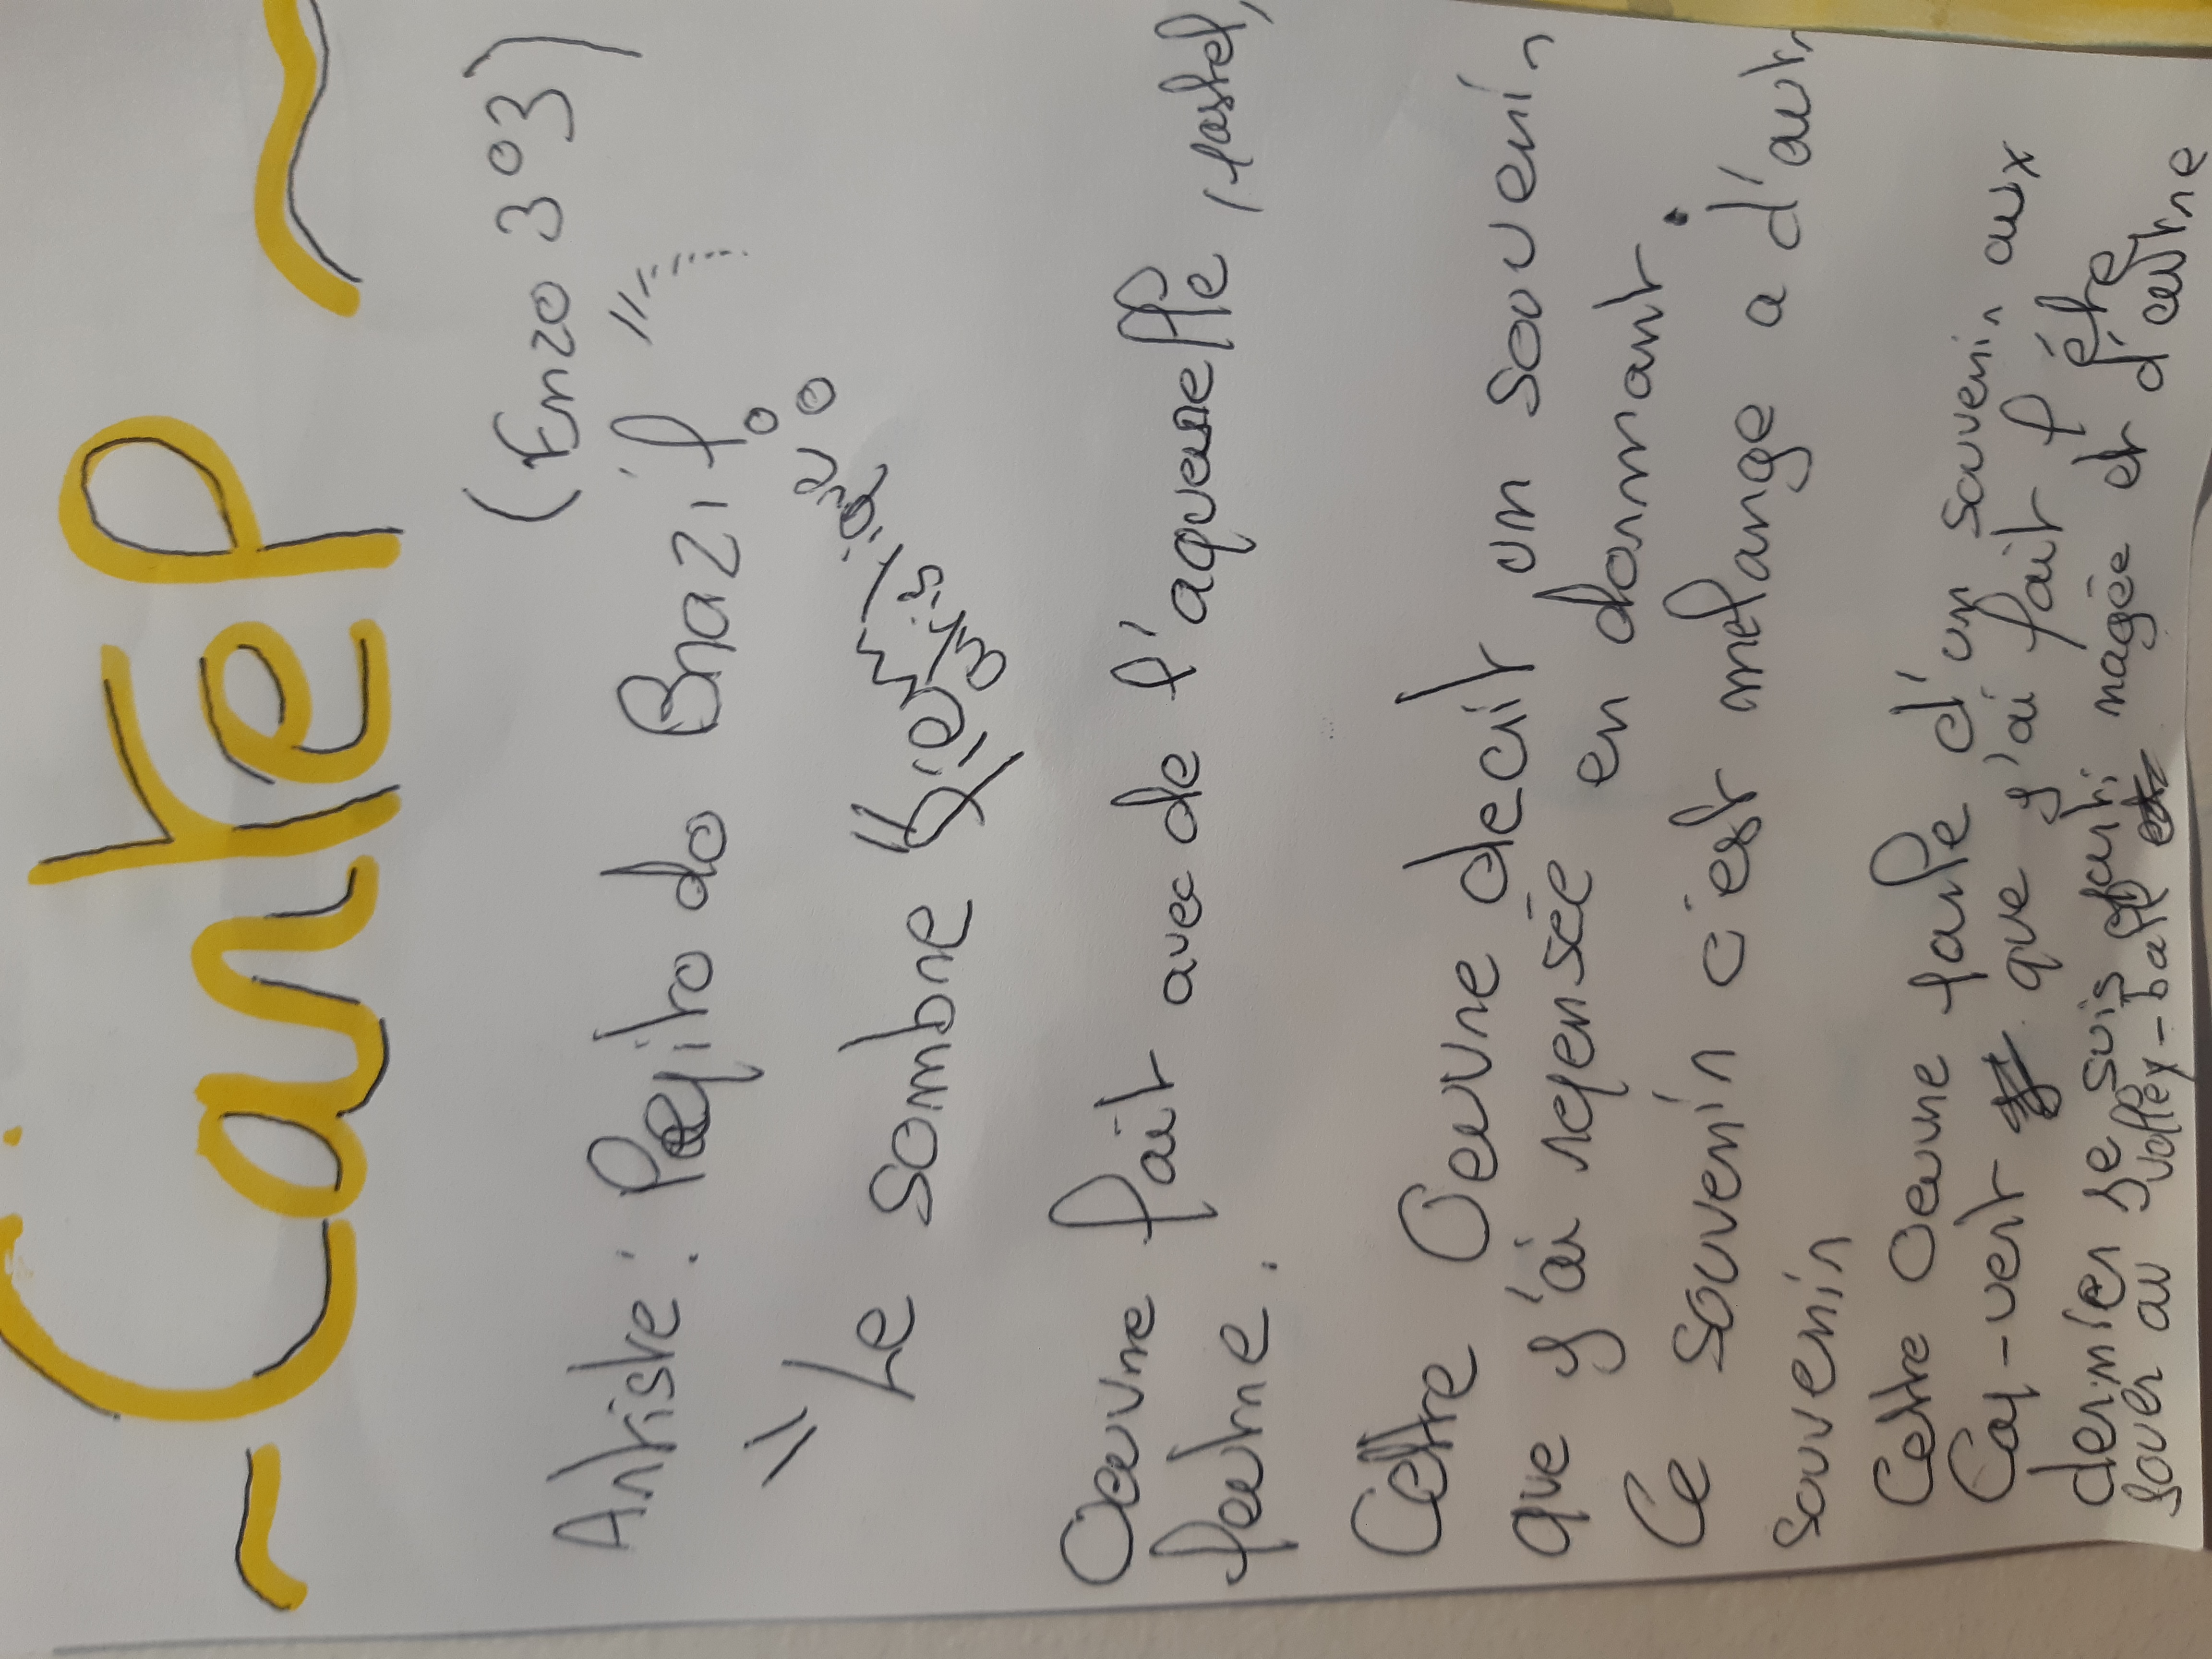 ~ Cartel ~
(Enzo 303)
Artiste: Pepito do Brazil
"Le sombre
Oeuvre fait avec de l'aquerelle, pastel,
feutre.
Cette Oeuvre decrit un souvenir
que j'ai repensée en dormant.
Ce souvenir c'est melange a d'autr
souvenir
Cette oeuvre parle d'un souvenir aux
Cap-vert que j'ai fait l'été
dernier je suis parti nagée et d'autre
jouer au volley-ball